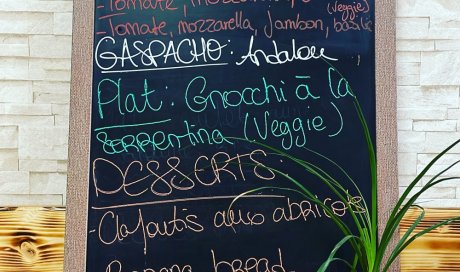 -Tomate,
(Veggie)
-Tomate, mozzarella, Jambon, basilic
GASPACHO: Andalou
Plat: Gnocchi à la
SORRENTINA (Veggie)
DESSERTS:
-Clafoutis aux abricots
-Banana bread